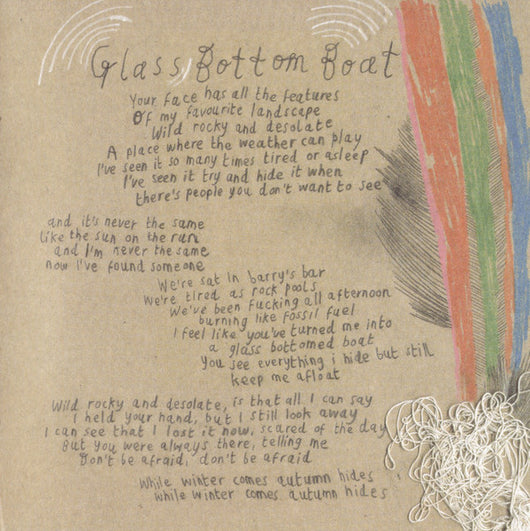 Glass Bottom Boat
Your face has all the features
Of my favourite landscape
Wild rocky and desolate
A place where the weather can play
I've seen it so many times tired or asleep
I've seen it try and hide it when
there's people you don't want to see
and it's never the same
like the sun on the run
and I'm never the same
now I've found someone
We're sat in barry's bar
We're tired as rock pools
We've been fucking all afternoon
burning like fossil fuel
I feel like you've turned me into
a glass bottomed boat
You see everything i hide but still
keep me afloat
Wild rocky and desolate, is that all I can say
I held your hand, but I still look away
I can see that I lost it now, scared of the day
But you were always there, telling me
Don't be afraid, don't be afraid
While winter comes autumn hides
While winter comes autumn hides